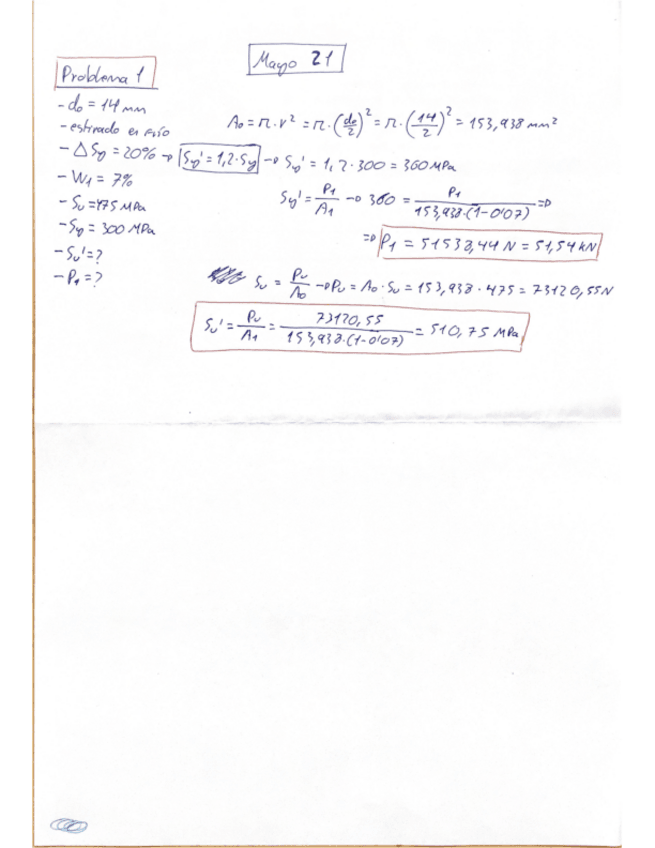 Mayo 21
Problema 1
- d₀ = 14 mm
- estirado en frío
- ΔSy = 20% → Sy' = 1,2·Sy → Sy' = 1,2·300 = 360 MPa
- W₁ = 7%
- Su = 475 MPa
- Sy = 300 MPa
- Su' = ?
- P₁ = ?
A₀ = π·r² = π·(d₀/2)² = π·(14/2)² = 153,938 mm²
Sy' = P₁/A₁ → 360 = P₁/153,938·(1-0'07) ⇒
⇒ P₁ = 51538,44 N = 51,54 kN
Su = Pu/A₀ → Pu = A₀·Su = 153,938·475 = 73120,55 N
Su' = Pu/A₁ = 73120,55/153,938·(1-0'07) = 510,75 MPa